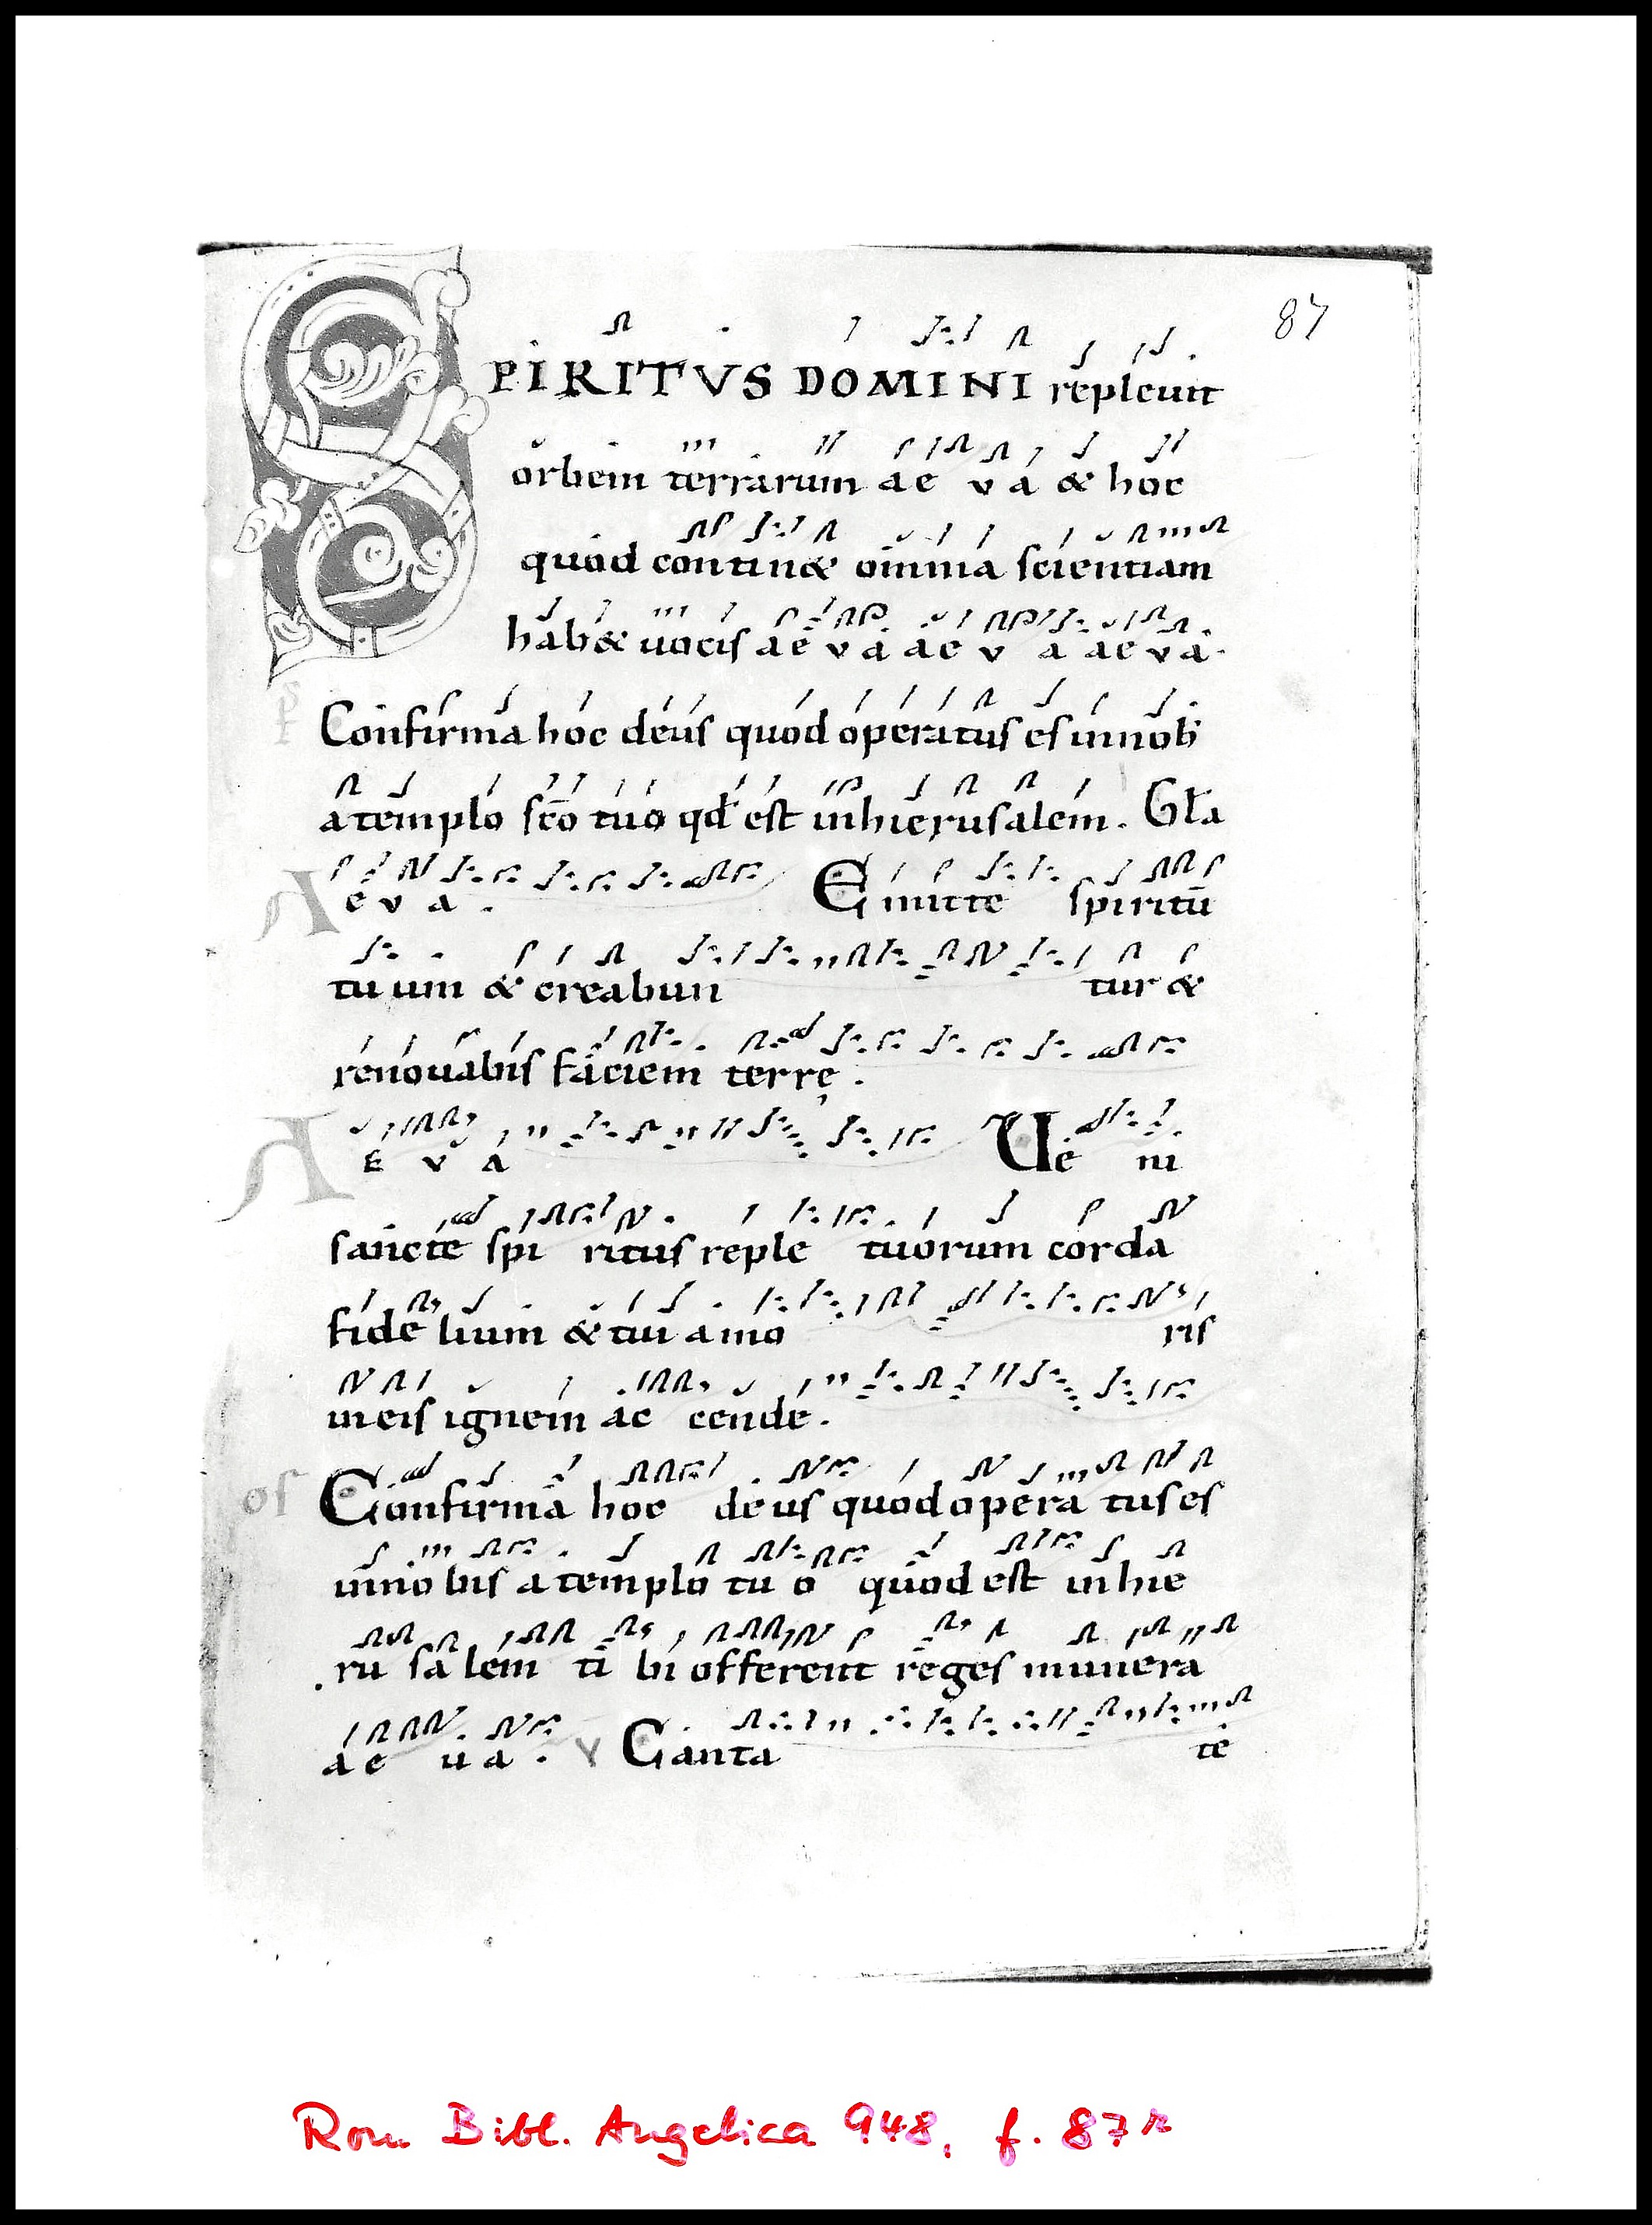 87
SPIRITVS DOMINI repleuit
orbem terrarum ae v a & hoc
quod contin& omnia scientiam
hab& uocis ae v a ae v a ae v a.
Ps Confirma hoc deus quod operatus es innob
a templo sc̄o tuo qd̄ est inhierusalem. Gła
A e v a. Emitte spiritū
tuum & creabun tur &
renouabis faciem terrę.
A E v A Ve ni
sancte spi ritus reple tuorum corda
fide lium & tui amo ris
ineis ignem ac cende.
of Confirma hoc deus quod opera tus es
innobis a templo tu o quod est inhie
ru sa lem ti bi offerent reges munera
ae u a. V Canta te
Rom Bibl. Angelica 948, f. 87r